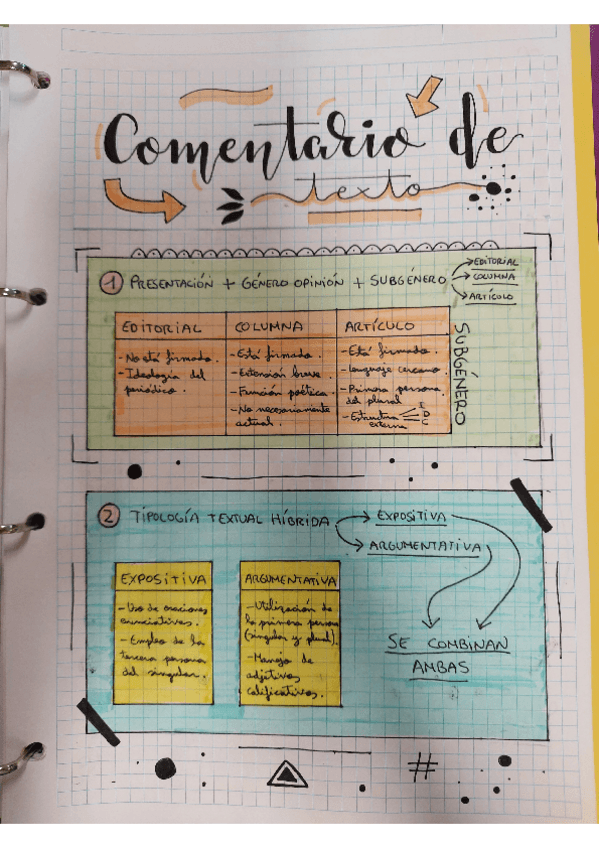 Comentario de
texto
1 PRESENTACIÓN + GÉNERO OPINIÓN + SUBGÉNERO
EDITORIAL
COLUMNA
ARTÍCULO
EDITORIAL
- No está firmada.
- Ideología del
periódico.
COLUMNA
- Está firmada.
- Extensión breve.
- Función poética.
- No necesariamente
actual.
ARTÍCULO
- Está firmado.
- Lenguaje cercano.
- Primera persona
del plural
- Estructura
externa
I
D
C
SUBGÉNERO
2 TIPOLOGÍA TEXTUAL HÍBRIDA
EXPOSITIVA
ARGUMENTATIVA
EXPOSITIVA
- Uso de oraciones
enunciativas.
- Empleo de la
tercera persona
del singular.
ARGUMENTATIVA
- Utilización de
la primera persona
(singular y plural).
- Manejo de
adjetivos
calificativos.
SE COMBINAN
AMBAS
#